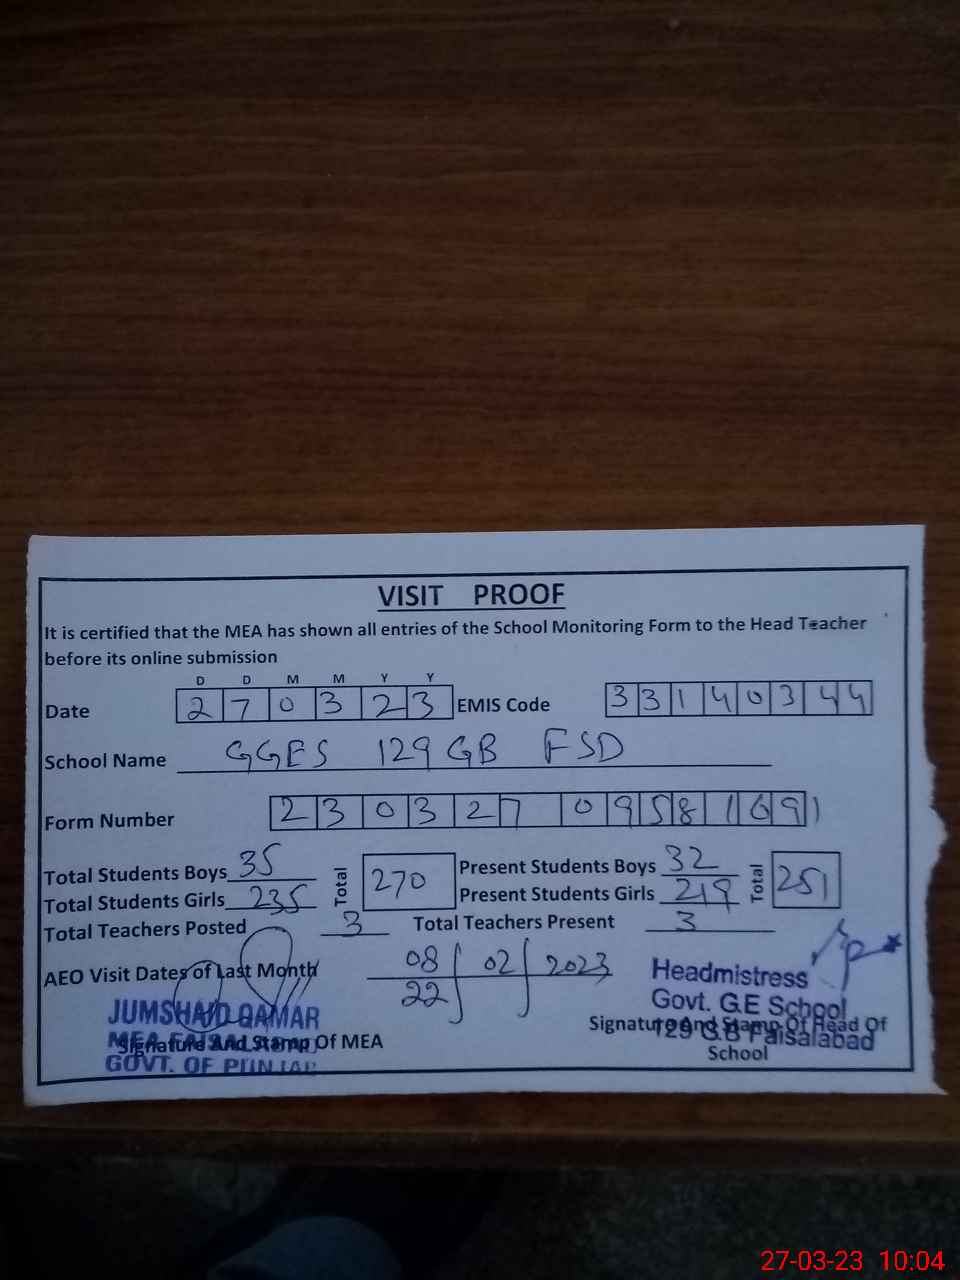 VISIT PROOF
It is certified that the MEA has shown all entries of the School Monitoring Form to the Head Teacher
before its online submission
D D M M Y Y
Date 2 7 0 3 2 3 EMIS Code 3 3 1 4 0 3 4 4
School Name GGES 129 GB FSD
Form Number 2 3 0 3 2 7 0 9 5 8 1 6 9 1
Total Students Boys 35 Total 270 Present Students Boys 32 Total 251
Total Students Girls 235 Present Students Girls 219
Total Teachers Posted 3 Total Teachers Present 3
AEO Visit Dates of Last Month 08 / 02 / 2023
22
JUMSHAID QAMAR
MEA
GOVT. OF PUNJAB
Signature And Stamp Of MEA
Headmistress
Govt. G.E School
129 G.B Faisalabad
Signature And Stamp Of Head Of
School
27-03-23 10:04